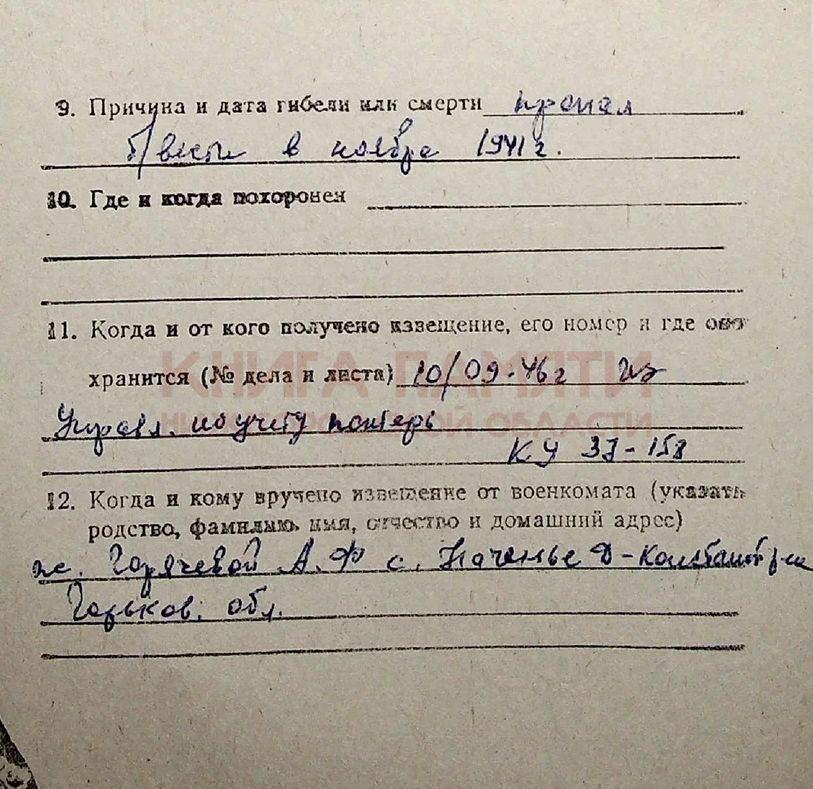 9. Причина и дата гибели или смерти пропал
б/вести в ноябре 1941 г.
10. Где и когда похоронен
11. Когда и от кого получено извещение, его номер и где оно
хранится (№ дела и листа) 10/09-46 г из
КНИГА ПАМЯТИ
Управл. по учету потерь
НИЖЕГОРОДСКОЙ ОБЛАСТИ
КУ 33-158
12. Когда и кому вручено извещение от военкомата (указать
родство, фамилию, имя, отчество и домашний адрес)
ж. Горячевой А. Ф с. Д-Константин р-на
Горьков. обл.